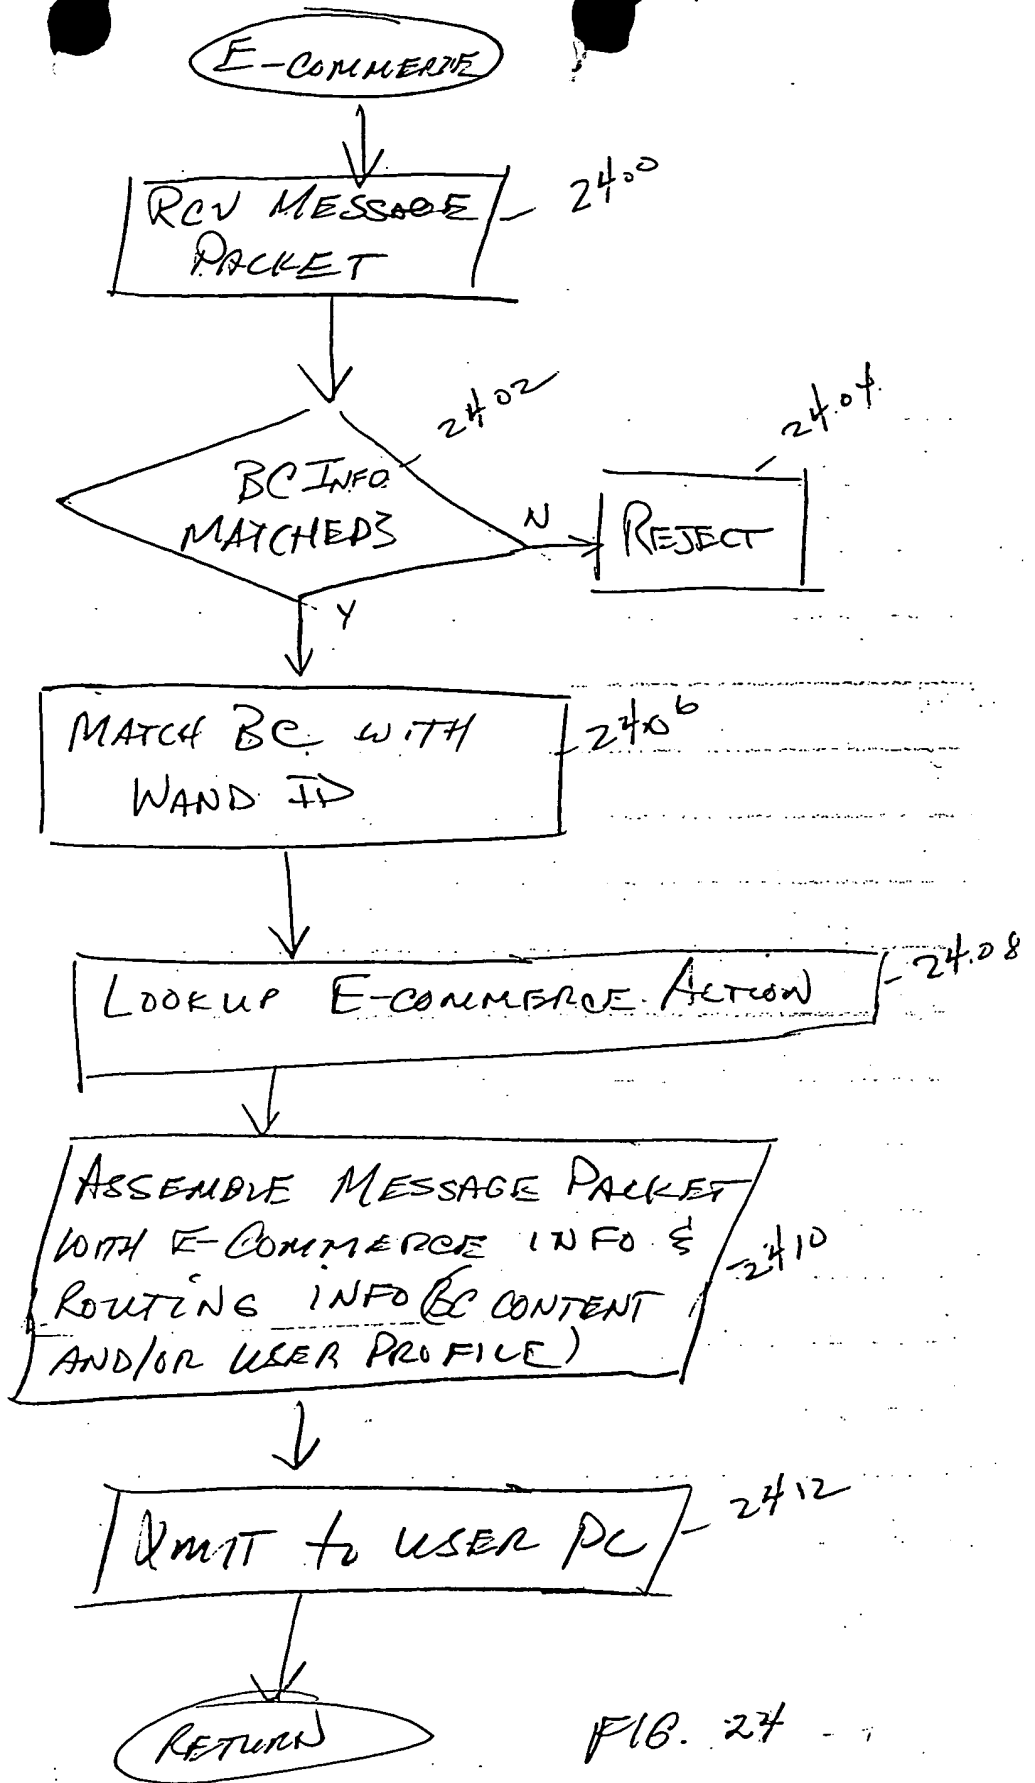 E-COMMERCE
RCV MESSAGE
PACKET
2400
2402
BC INFO
MATCHED?
N
Y
2404
REJECT
MATCH BC WITH
WAND ID
2406
LOOKUP E-COMMERCE ACTION
2408
ASSEMBLE MESSAGE PACKET
WITH E-COMMERCE INFO &
ROUTING INFO (BC CONTENT
AND/OR USER PROFILE)
2410
XMIT to USER PC
2412
RETURN
FIG. 24